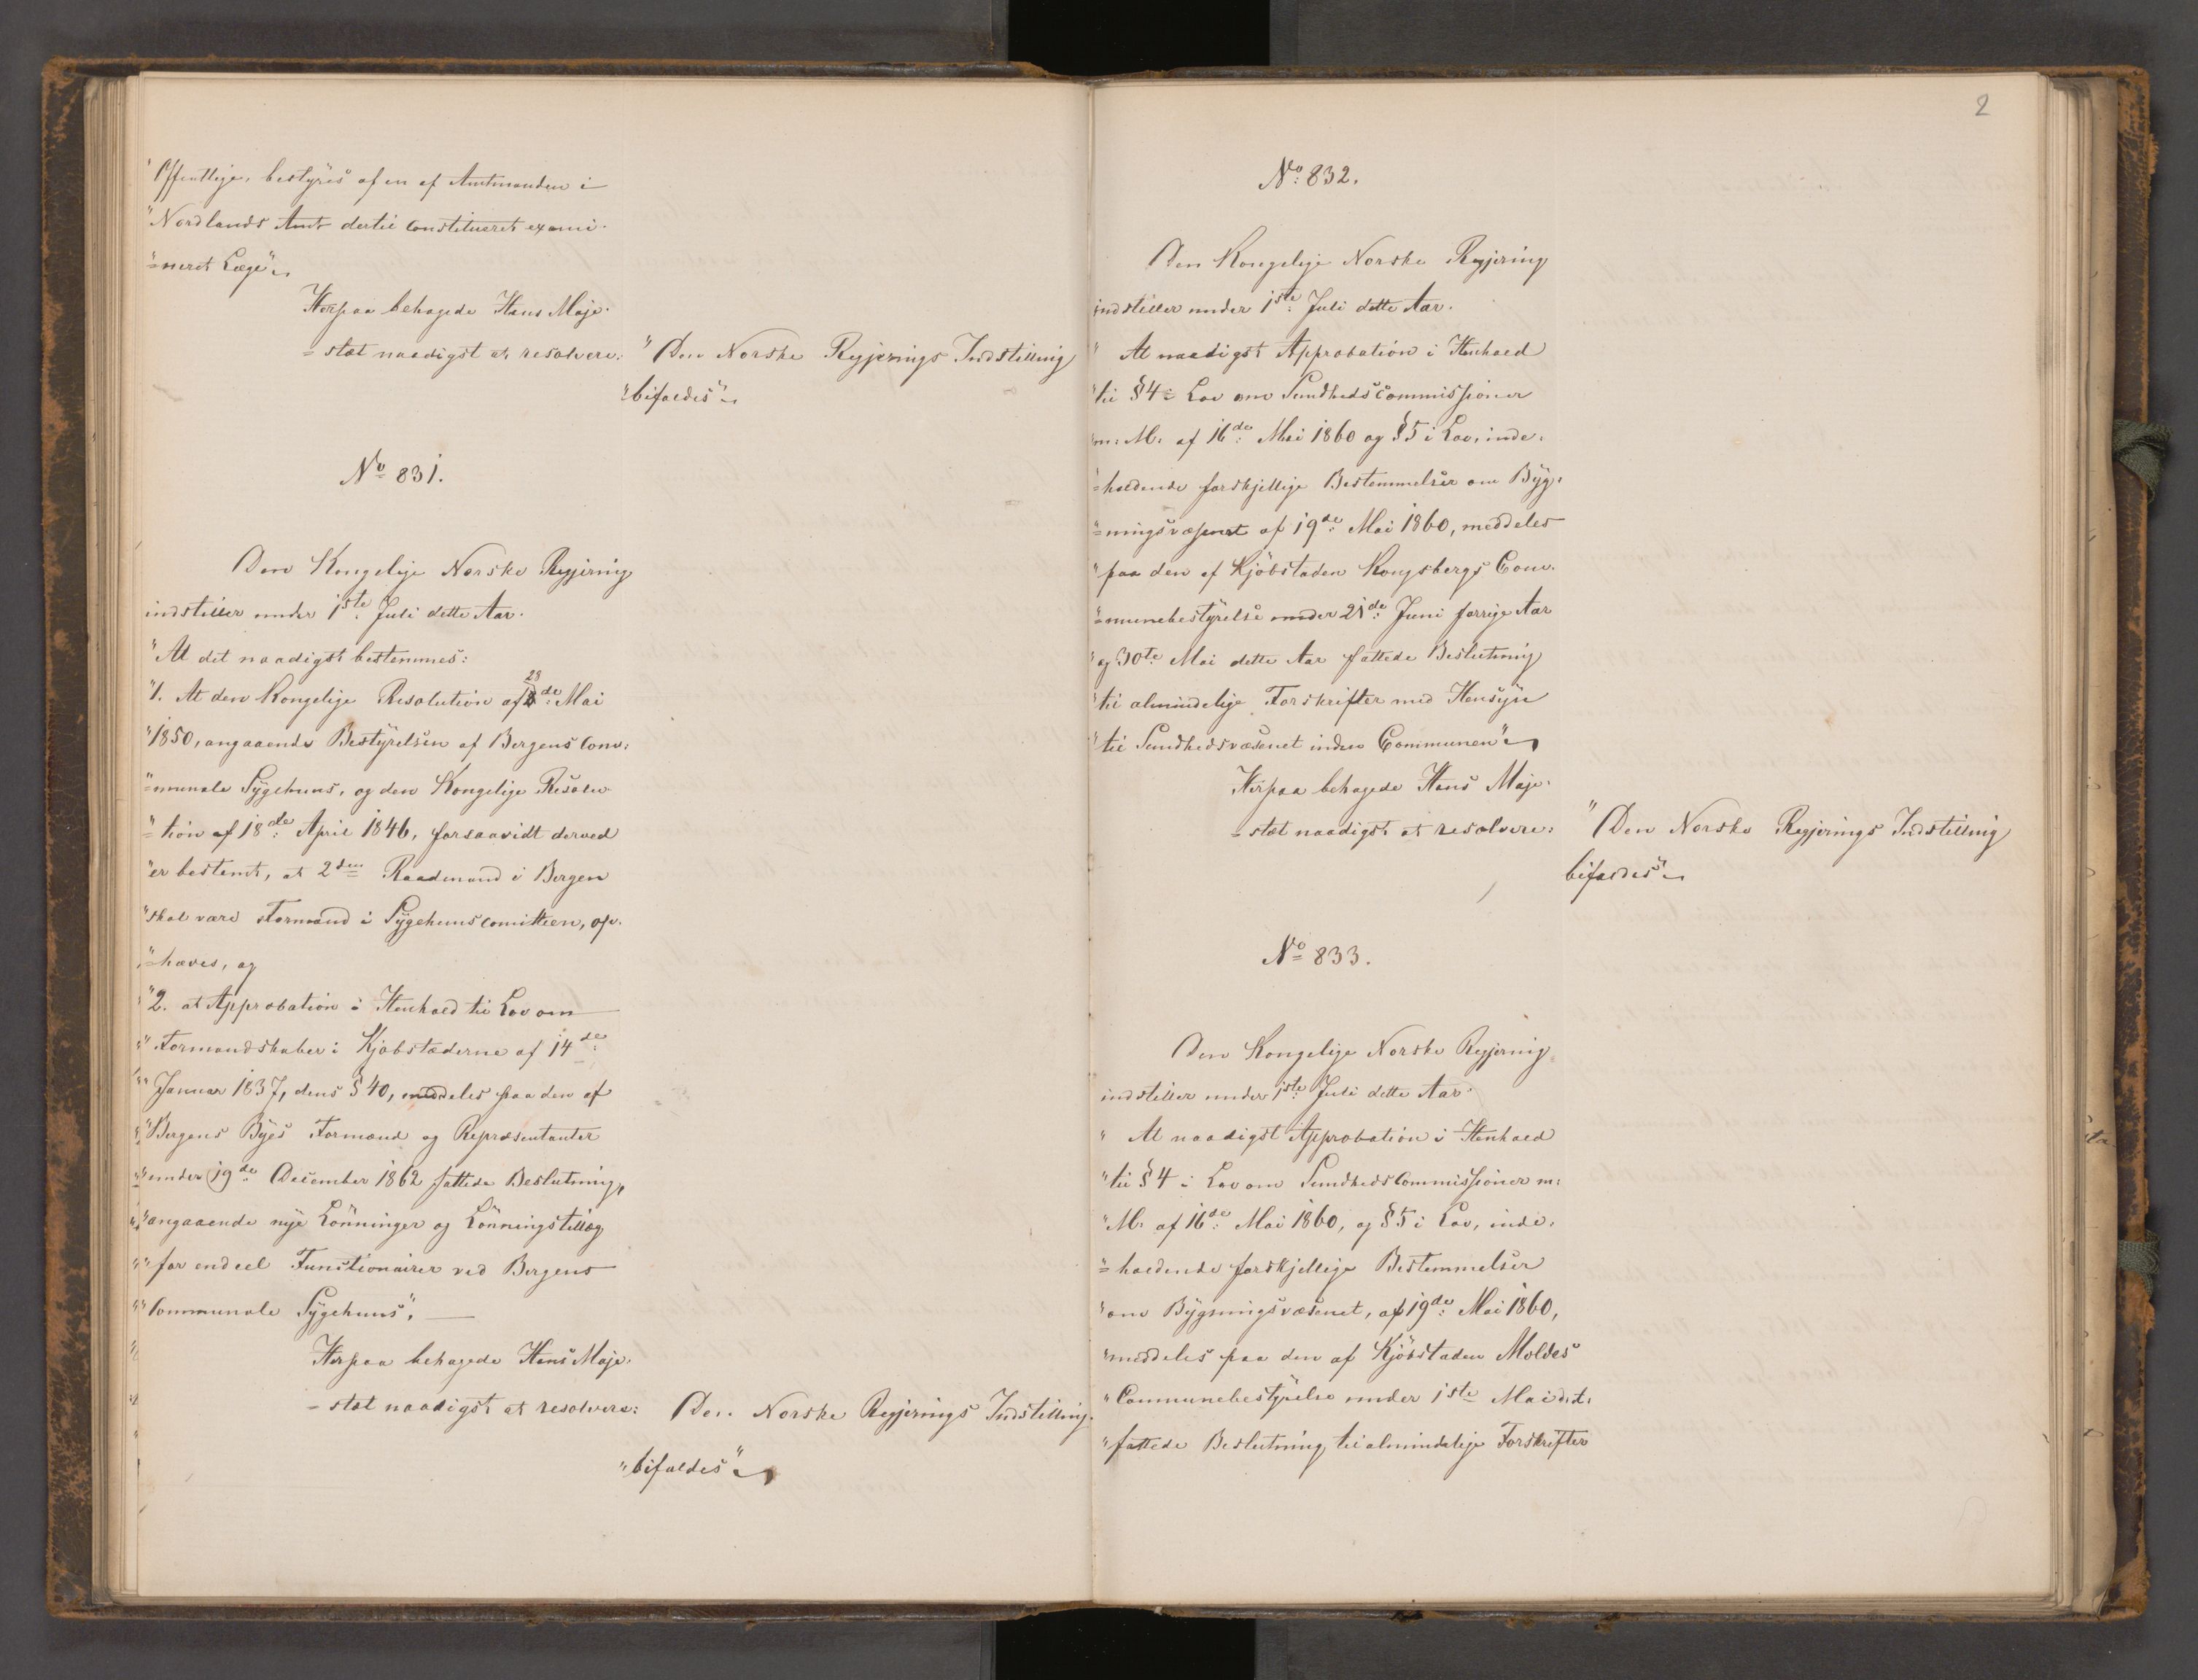 "Offentlige, bestyres af en af Amtmanden i
"Nordlands Amt dertil constitueret exami-
"=neret Læge"
Herpaa behagede Hans Maje-
=stæt naadigst at resolvere:
"Den Norske Regjerings Indstilling
"bifaldes"
No 831.
Den Kongelige Norske Regjering
indstiller under 1ste Juli dette Aar.
"At det naadigst bestemmes:
"1. At den Kongelige Resolution af 28de Mai
"1850, angaaende Bestyrelsen af Bergens Com-
"=munale Sygehuus, og den Kongelige Resolu-
"=tion af 18de April 1846, forsaavidt derved
"er bestemt, at 2den Raadmand i Bergen
"skal være Formand i Sygehuuscomitteen, op-
"=hæves, og
"2. at Approbation i Henhold til Lov om
"Formandskaber i Kjøbstæderne af 14de
"Januar 1837, dens § 40, meddeles paa den af
"Bergens Byes Formænd og Repræsentanter
"under 19de December 1862 fattede Beslutning,
"angaaende nye Lönninger og Lönningstillæg
"for endeel Functionairer ved Bergens
"Communale Sygehuus".
Herpaa behagede Hans Maje-
=stæt naadigst at resolvere:
Den Norske Regjerings Indstilling
"bifaldes"
2
No: 832.
Den Kongelige Norske Regjering
indstiller under 1ste Juli dette Aar.
"At naadigst Approbation i Henhold
"til § 4 i Lov om Sundhedscommissioner
"m: M: af 16de Mai 1860 og § 5 i Lov, inde-
"=holdende forskjellige Bestemmelser om Byg-
"=ningsvæsenet af 19de Mai 1860, meddeles
"paa den af Kjöbstaden Kongsbergs Com-
"=munebestyrelse under 21de Juni forrige Aar
"og 30te Mai dette Aar fattede Beslutning
"til almindelige Forskrifter med Hensyn
"til Sundhedsvæsenet inden Communen"
Herpaa behagede Hans Maje-
=stæt naadigst at resolvere:
"Den Norske Regjerings Indstilling
bifaldes"
No 833.
Den Kongelige Norske Regjering
indstiller under 1ste Juli dette Aar.
"At naadigst Approbation i Henhold
"til § 4 i Lov om Sundhedscommissioner m:
"M: af 16de Mai 1860, og § 5 i Lov, inde-
"=holdende forskjellige Bestemmelser
"om Bygningsvæsenet, af 19de Mai 1860,
"meddeles paa den af Kjöbstaden Moldes
"Communebestyrelse under 1ste Mai d. A.
"fattede Beslutning til almindelige Forskrifter